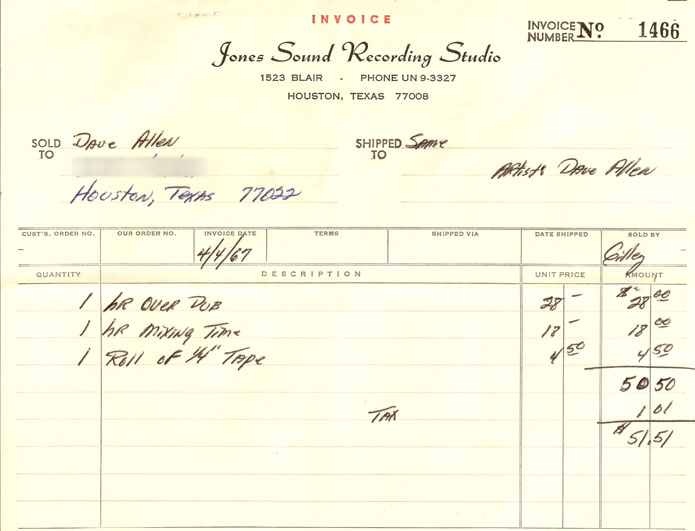 INVOICE
INVOICE NUMBER Nº 1466
Jones Sound Recording Studio
1523 BLAIR - PHONE UN 9-3327
HOUSTON, TEXAS 77008
SOLD TO Dave Allen
SHIPPED TO Same
Artist's Dave Allen
Houston, Texas 77022
CUST'S. ORDER NO. OUR ORDER NO. INVOICE DATE TERMS SHIPPED VIA DATE SHIPPED SOLD BY
4/4/67 Gilley
QUANTITY DESCRIPTION UNIT PRICE AMOUNT
1 hr Over Dub 28 – $ 28 00
1 hr Mixing Time 18 – 18 00
1 Roll of 1/4" Tape 4 50 4 50
50 50
Tax 1 01
$ 51.51